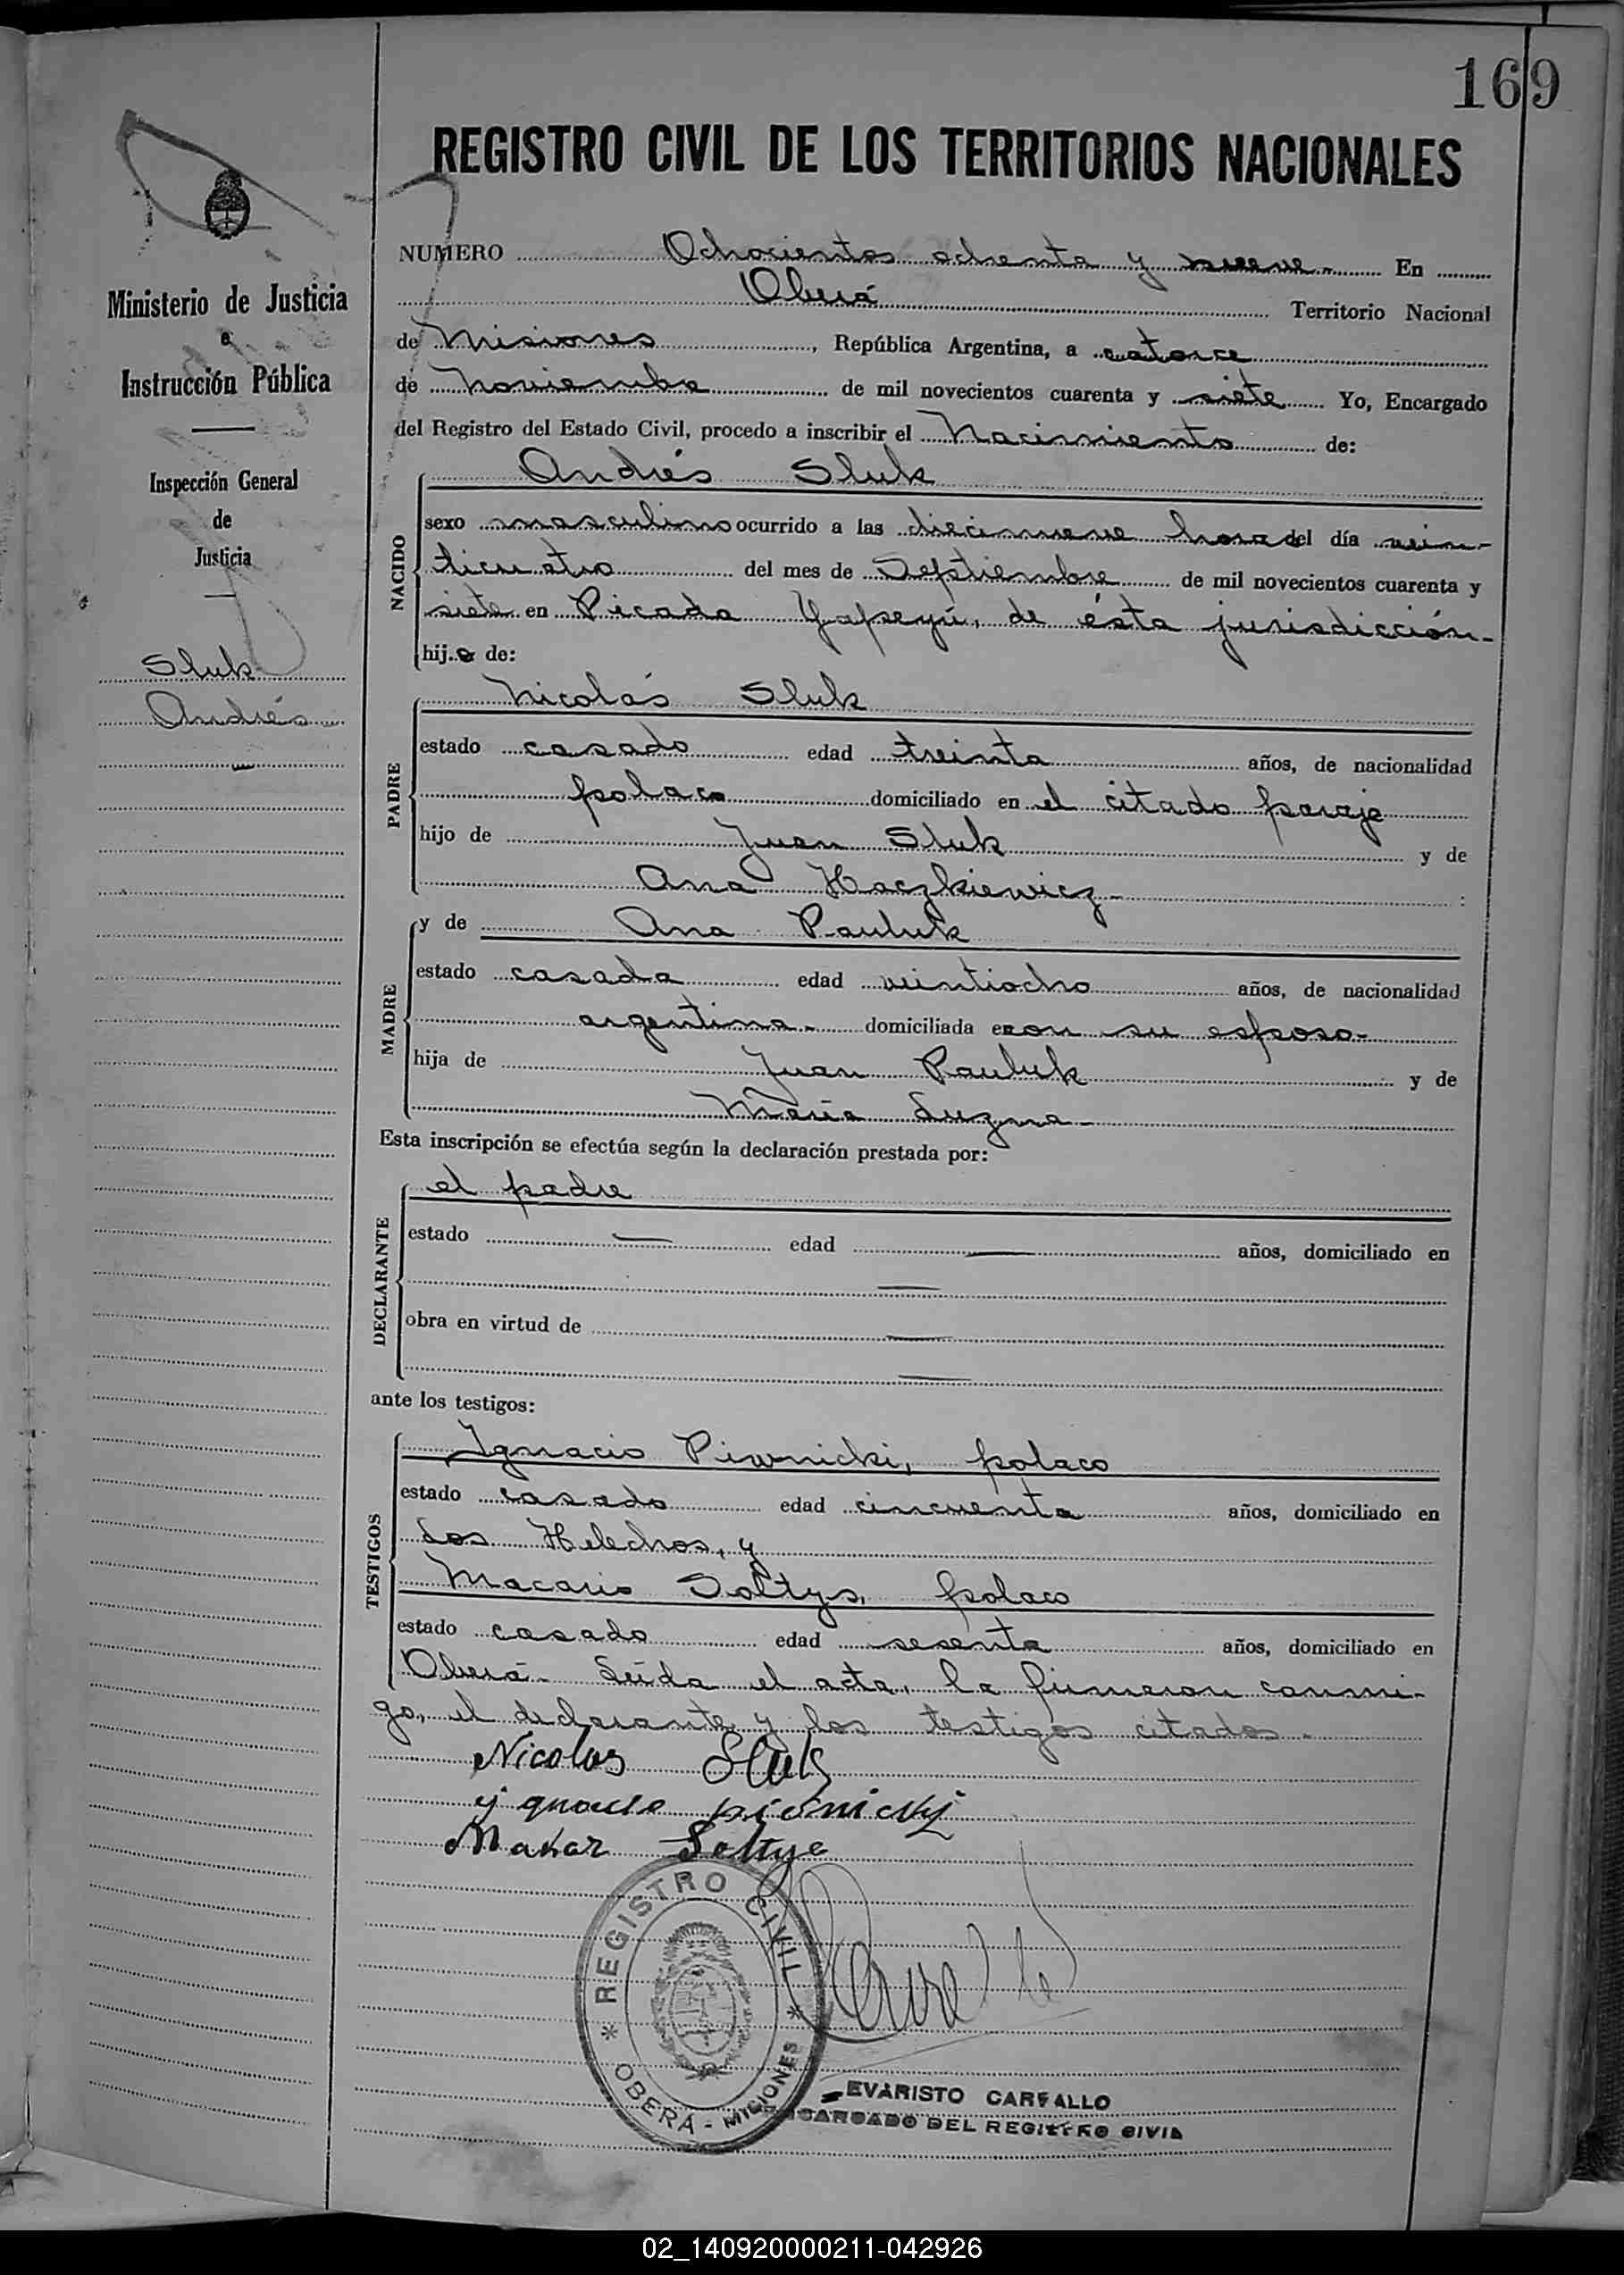 169
REGISTRO CIVIL DE LOS TERRITORIOS NACIONALES
Ministerio de Justicia
e
Instrucción Pública
Inspección General
de
Justicia
Sluk
Andrés
NUMERO Ochocientos ochenta y nueve.- En
Oberá Territorio Nacional
de Misiones, República Argentina, a catorce
de Noviembre de mil novecientos cuarenta y siete Yo, Encargado
del Registro del Estado Civil, procedo a inscribir el Nacimiento de:
NACIDO
Andrés Sluk
sexo masculino ocurrido a las diecinueve horas del día vein-
ticuatro del mes de Septiembre de mil novecientos cuarenta y
siete en Picada Yapeyú, de ésta jurisdicción-
hijo de:
PADRE
Nicolás Sluk
estado casado edad treinta años, de nacionalidad
polaco domiciliado en el citado paraje
hijo de Juan Sluk y de
Ana Haczkiewicz- :
MADRE
y de Ana Pauluk
estado casada edad veintiocho años, de nacionalidad
argentina.- domiciliada con su esposo-
hija de Juan Pauluk y de
María Luzna-
Esta inscripción se efectúa según la declaración prestada por:
DECLARANTE
el padre
estado — edad — años, domiciliado en
—
obra en virtud de —
—
ante los testigos:
TESTIGOS
Ignacio Piwnicki, polaco
estado casado edad cincuenta años, domiciliado en
Los Helechos, y
Macario Soltys, polaco
estado casado edad sesenta años, domiciliado en
Oberá- Leída el acta, la firmaron conmi-
go, el declarante y los testigos citados.-
Nicolas Sluk
ygnacio piwnickij
Makar Soltys
* REGISTRO CIVIL *
OBERÁ - MISIONES
EVARISTO CARVALLO
ENCARGADO DEL REGISTRO CIVIL
02_140920000211-042926